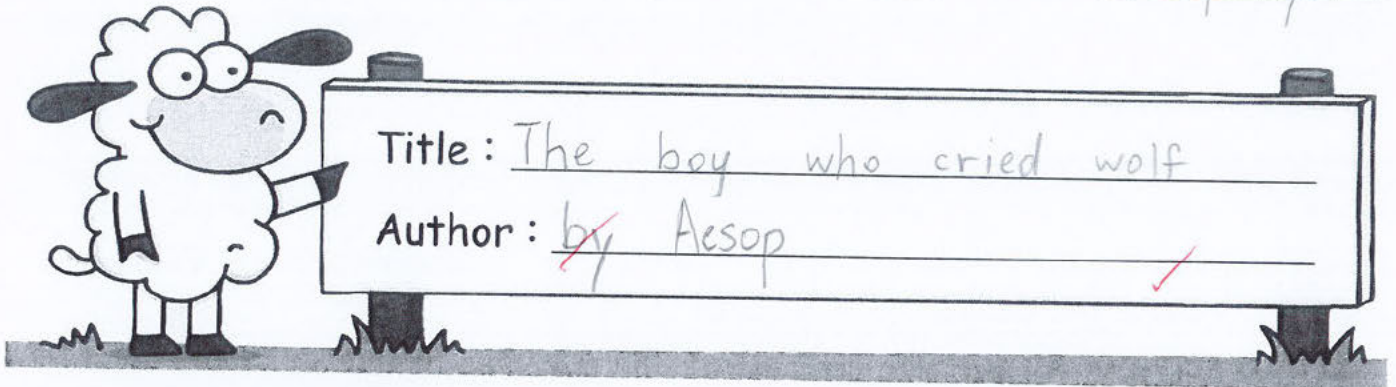 Title : The boy who cried wolf
Author : by Aesop